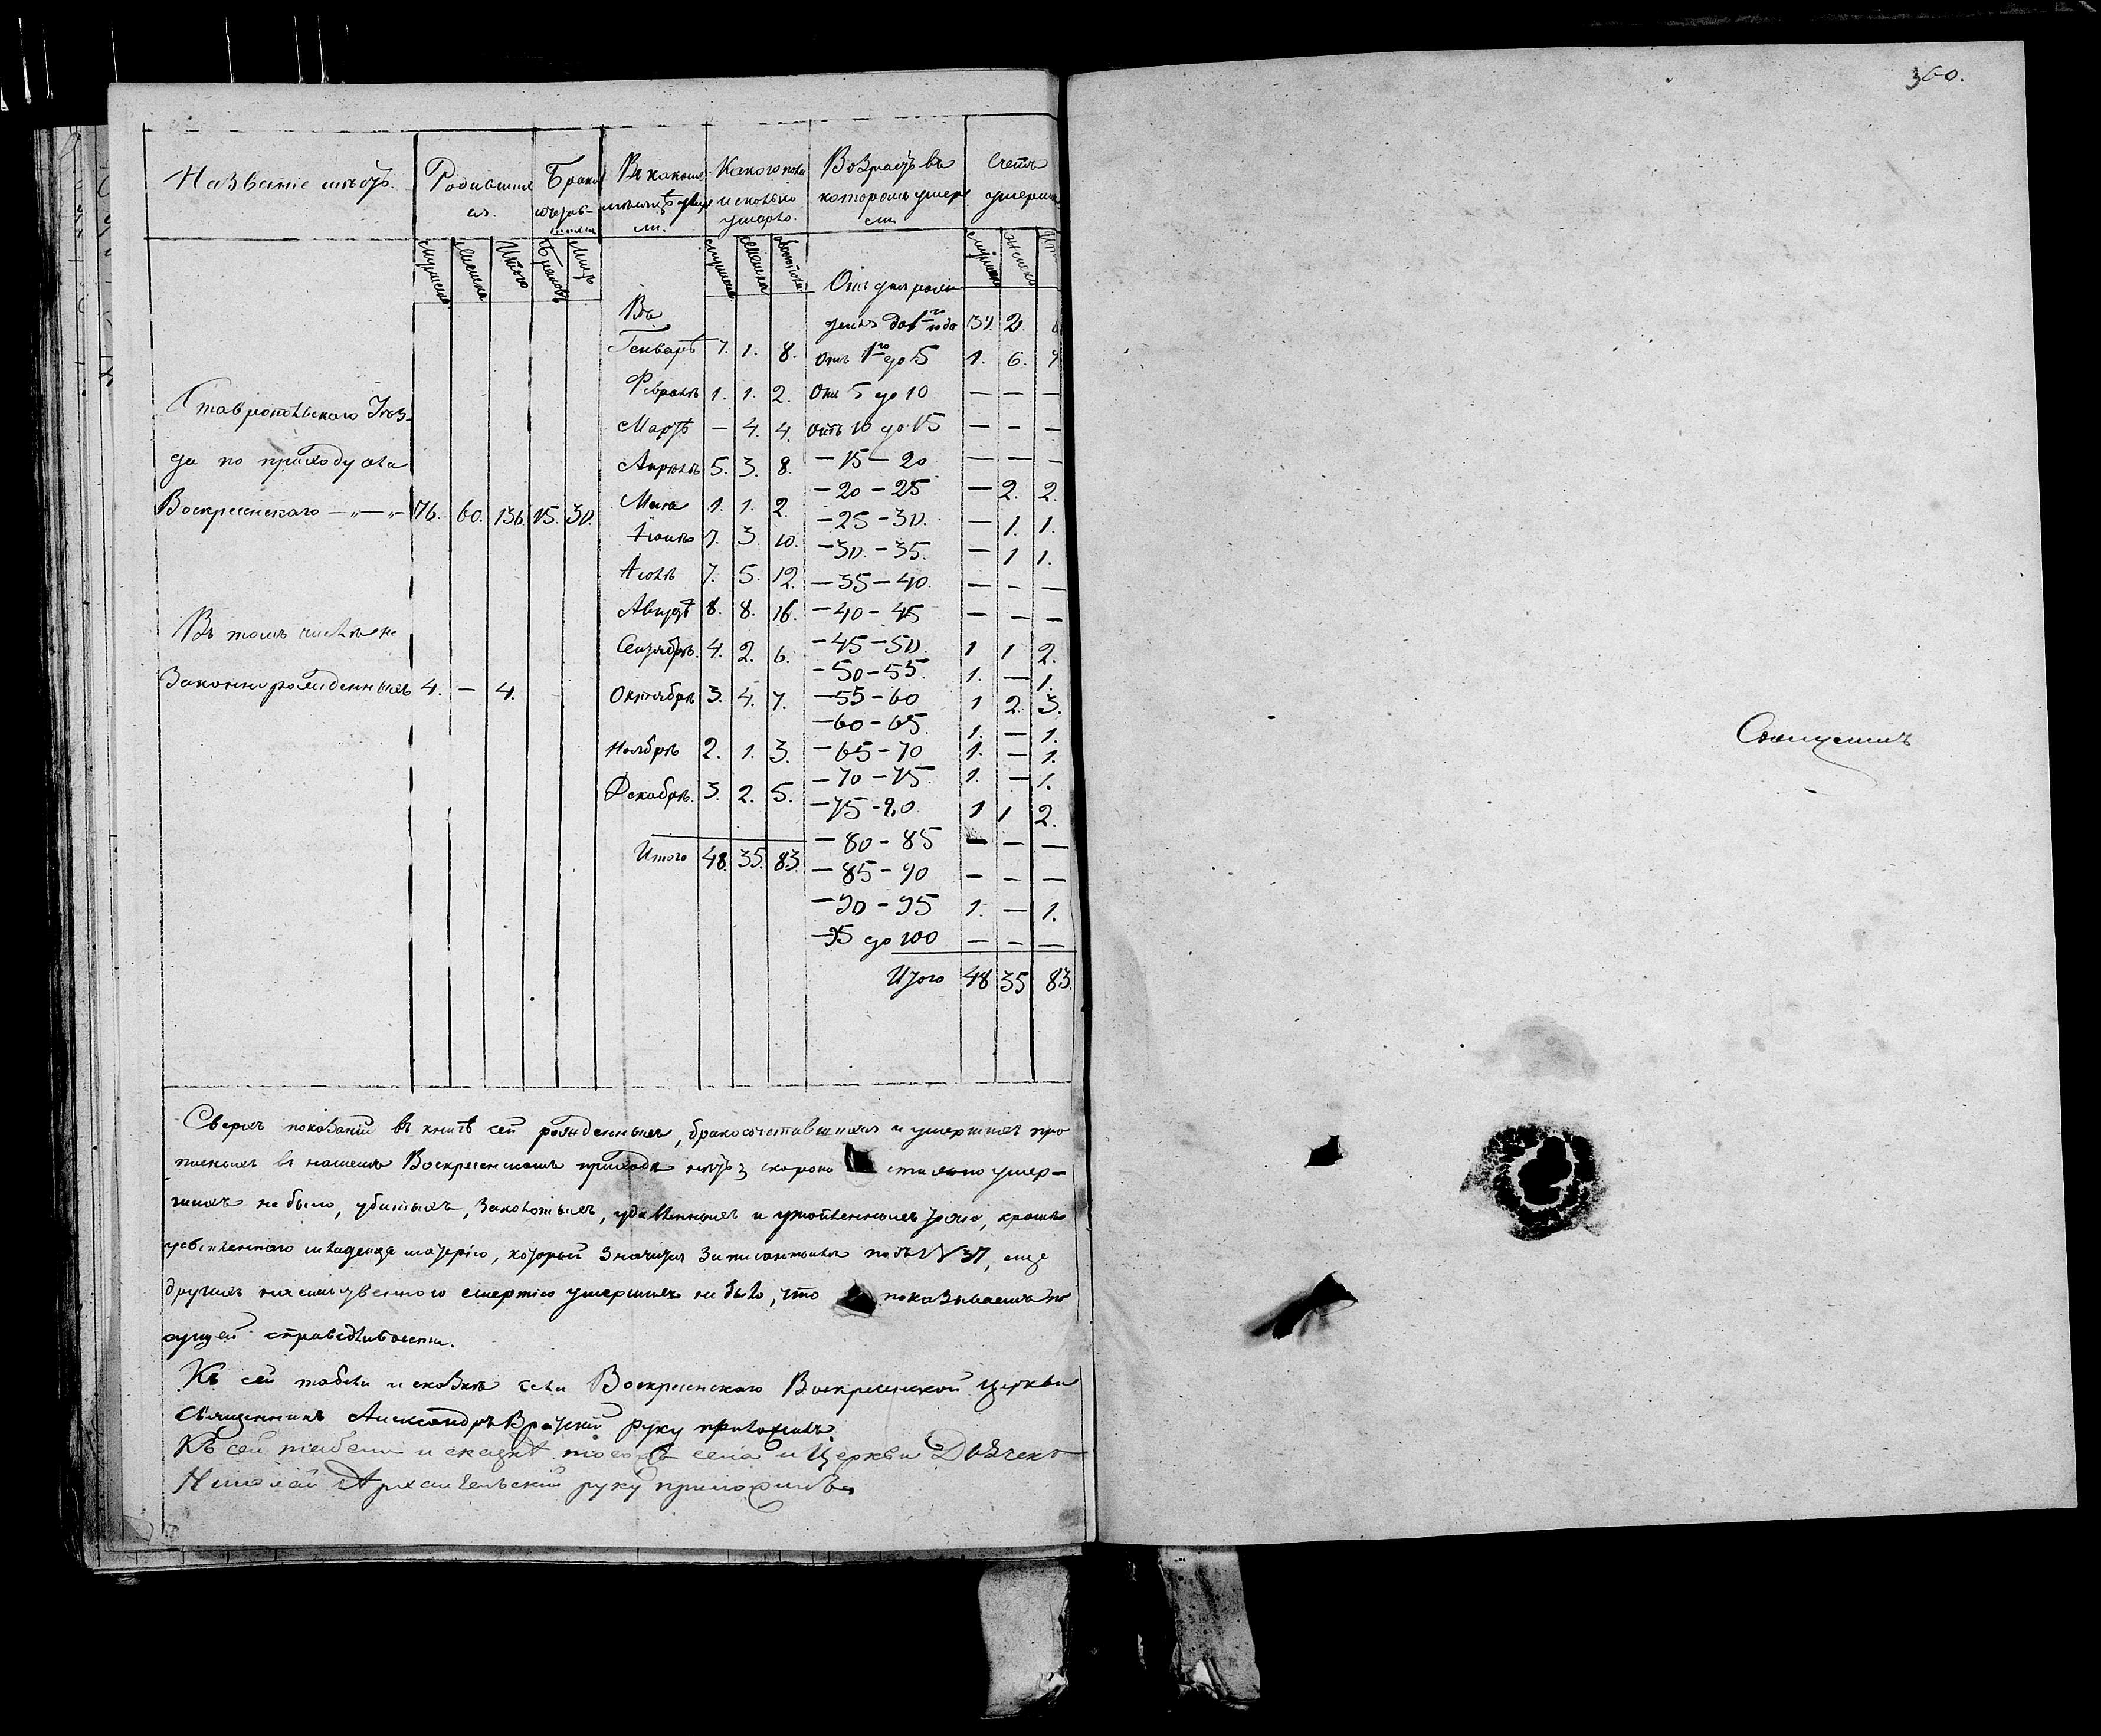 360.
Названіе мѣстъ.
Родившихся.
Бракосочетавшихся
Въ какомъ мѣсяцѣ умерли.
Какого пола и сколько умерло.
Возрастъ въ которомъ умерли
Счетъ умершихъ
Мужеска Женска Итого Браковъ Лицъ Мужеска Женска Обоего пола Мужеска Женска
Отъ дня рожденія до 1го года 39. 21.
Въ
Генварѣ 7. 1. 8. Отъ 1го до 5 1. 6. 7
Февралѣ 1. 1. 2. Отъ 5 до 10 — — —
Мартѣ — 4. 4. Отъ 10 до 15 — — —
Апрѣлѣ 5. 3. 8. — 15 — 20 — — —
— 20 — 25 — 2. 2.
Маіѣ 1. 1. 2. — 25 — 30. — 1. 1.
Іюнѣ 7. 3. 10. — 30. — 35. — 1 1.
Іюлѣ 7. 5. 12. — 35 — 40. — — —
Августѣ 8. 8. 16. — 40 — 45 — — —
Сентябрѣ. 4. 2. 6. — 45 — 50. 1 1 2.
— 50 — 55. 1. — 1.
Октябрѣ 3. 4. 7. — 55 — 60 1 2. 3.
— 60 — 65. 1. — 1.
Ноябрѣ 2. 1. 3. — 65 — 70 1. — 1.
— 70 — 75. 1. — 1.
Декабрѣ. 3. 2. 5. — 75 — 80 1 1 2.
— 80 — 85 — — —
Итого 48. 35. 83. — 85 — 90 — — —
— 90 — 95 1. — 1.
— 95 до 100 — — —
Итого 48 35 83.
Ставропольскаго Уѣз-
да по приходу села
Воскресенскаго — „ — „ — 76. 60. 136. 15. 30.
Въ томъ числѣ не
законнорожденныхъ 4. — 4.
Сверхъ показаній въ книгѣ сей рожденныхъ, бракосочетавшихся и умершихъ про
въ нашемъ Воскресенскомъ приходѣ нѣтъ; скоропо стижно умер-
шихъ не было, убитыхъ, заколотыхъ, удавленныхъ и утопленныхъ тоже, кромѣ
младенца матерію, который значится записаннымъ подъ № 37, еще
другихъ смертію умершихъ не было, что показываемъ по
сущей справедливости.
Къ сей табели и сказкѣ села Воскресенскаго Воскресенской церкви
Священникъ Александръ руку приложилъ.
Къ сей табели и сказкѣ тогожъ села и Церкви Дьячекъ
Николай Архангельскій руку приложилъ